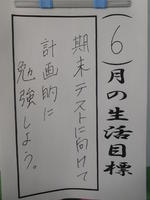 （6）月の生活目標
期末テストに向けて
計画的に
勉強しよう。